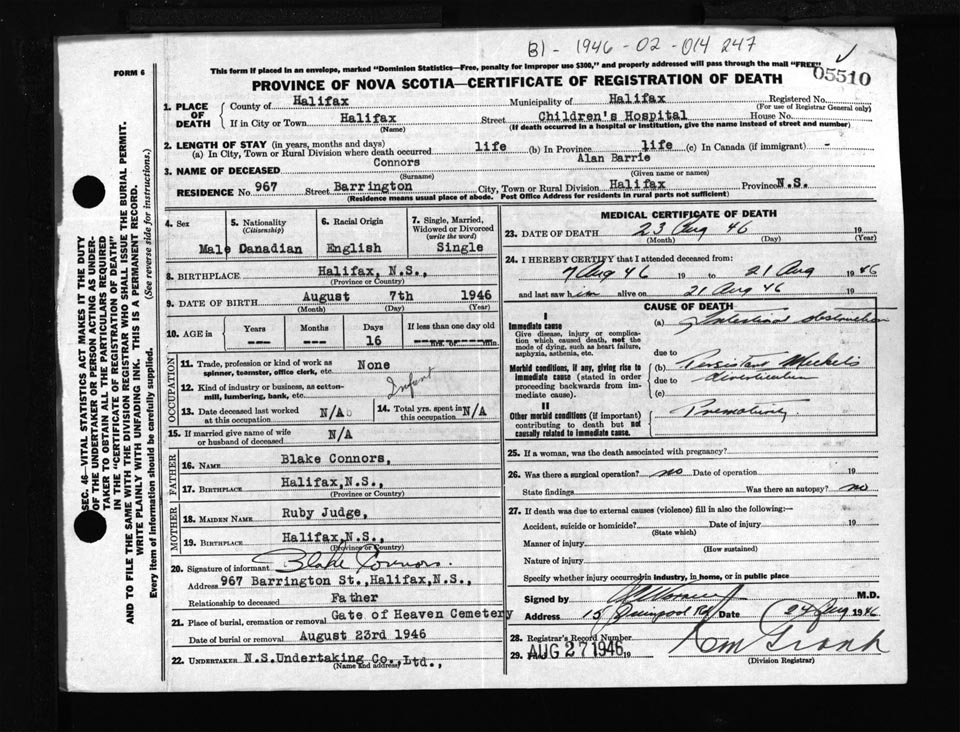 B1 - 1946 - 02 - 014 247
FORM 6
This form if placed in an envelope, marked "Dominion Statistics—Free, penalty for improper use $300," and properly addressed will pass through the mail "FREE"
05510
PROVINCE OF NOVA SCOTIA—CERTIFICATE OF REGISTRATION OF DEATH
1. PLACE OF DEATH
County of Halifax Municipality of Halifax Registered No.
(For use of Registrar General only)
If in City or Town Halifax Street Children's Hospital House No.
(Name) (If death occurred in a hospital or institution, give the name instead of street and number)
2. LENGTH OF STAY (in years, months and days)
(a) In City, Town or Rural Division where death occurred life (b) In Province life (c) In Canada (if immigrant) -
3. NAME OF DECEASED Connors Alan Barrie
(Surname) (Given name or names)
RESIDENCE No. 967 Street Barrington City, Town or Rural Division Halifax Province N.S.
(Residence means usual place of abode. Post Office Address for residents in rural parts not sufficient)
4. Sex
Male
5. Nationality
(Citizenship)
Canadian
6. Racial Origin
English
7. Single, Married, Widowed or Divorced
(write the word)
Single
8. BIRTHPLACE Halifax, N.S.,
(Province or Country)
9. DATE OF BIRTH August 7th 1946
(Month) (Day) (Year)
10. AGE in
Years Months Days If less than one day old
--- --- 16 hrs. or min.
OCCUPATION
11. Trade, profession or kind of work as spinner, teamster, office clerk, etc. None
12. Kind of industry or business, as cotton-mill, lumbering, bank, etc. Infant
13. Date deceased last worked at this occupation N/A
14. Total yrs. spent in this occupation N/A
15. If married give name of wife or husband of deceased N/A
FATHER
16. NAME Blake Connors,
17. BIRTHPLACE Halifax,N.S.,
(Province or Country)
MOTHER
18. MAIDEN NAME Ruby Judge,
19. BIRTHPLACE Halifax,N.S.,
(Province or Country)
20. Signature of informant Blake Connors.
Address 967 Barrington St.,Halifax,N.S.,
Relationship to deceased Father
21. Place of burial, cremation or removal Gate of Heaven Cemetery
Date of burial or removal August 23rd 1946
22. UNDERTAKER N.S.Undertaking Co.,Ltd.,
(Name and address)
MEDICAL CERTIFICATE OF DEATH
23. DATE OF DEATH 23 Aug 46 19
(Month) (Day) (Year)
24. I HEREBY CERTIFY that I attended deceased from:
7 Aug 46 19 to 21 Aug 1946
and last saw him alive on 21 Aug 46 19
CAUSE OF DEATH
I
Immediate cause
Give disease, injury or complication which caused death, not the mode of dying, such as heart failure, asphyxia, asthenia, etc.
(a) Intestinal obstruction
due to
Morbid conditions, if any, giving rise to immediate cause (stated in order proceeding backwards from immediate cause).
(b) Persistant Meckels
due to diverticulum
(c)
II
Other morbid conditions (if important) contributing to death but not causally related to immediate cause.
Prematurity
25. If a woman, was the death associated with pregnancy?
26. Was there a surgical operation? no Date of operation 19
State findings Was there an autopsy? no
27. If death was due to external causes (violence) fill in also the following:—
Accident, suicide or homicide? Date of injury 19
(State which)
Manner of injury
(How sustained)
Nature of injury
Specify whether injury occurred in industry, in home, or in public place
Signed by M.D.
Address 15 Quinpool Rd Date 24 Aug 1946
28. Registrar's Record Number
29. AUG 27 1946 19
(Division Registrar)
SEC. 46—VITAL STATISTICS ACT MAKES IT THE DUTY
OF THE UNDERTAKER OR PERSON ACTING AS UNDER-
TAKER TO OBTAIN ALL THE PARTICULARS REQUIRED
IN THE "CERTIFICATE OF REGISTRATION OF DEATH"
AND TO FILE THE SAME WITH THE DIVISION REGISTRAR WHO SHALL ISSUE THE BURIAL PERMIT.
WRITE PLAINLY WITH UNFADING INK. THIS IS A PERMANENT RECORD.
Every item of information should be carefully supplied. (See reverse side for instructions.)